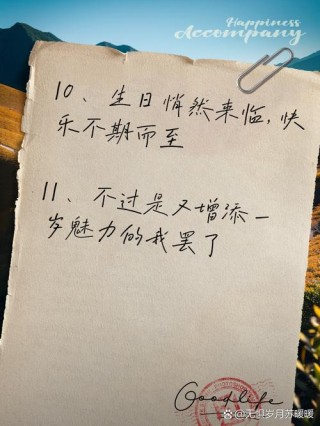 Happiness
Accompany
10、生日悄然来临,快
乐不期而至
11、不过是又增添一
岁魅力的我罢了
Goodlife
@无惧岁月苏暖暖